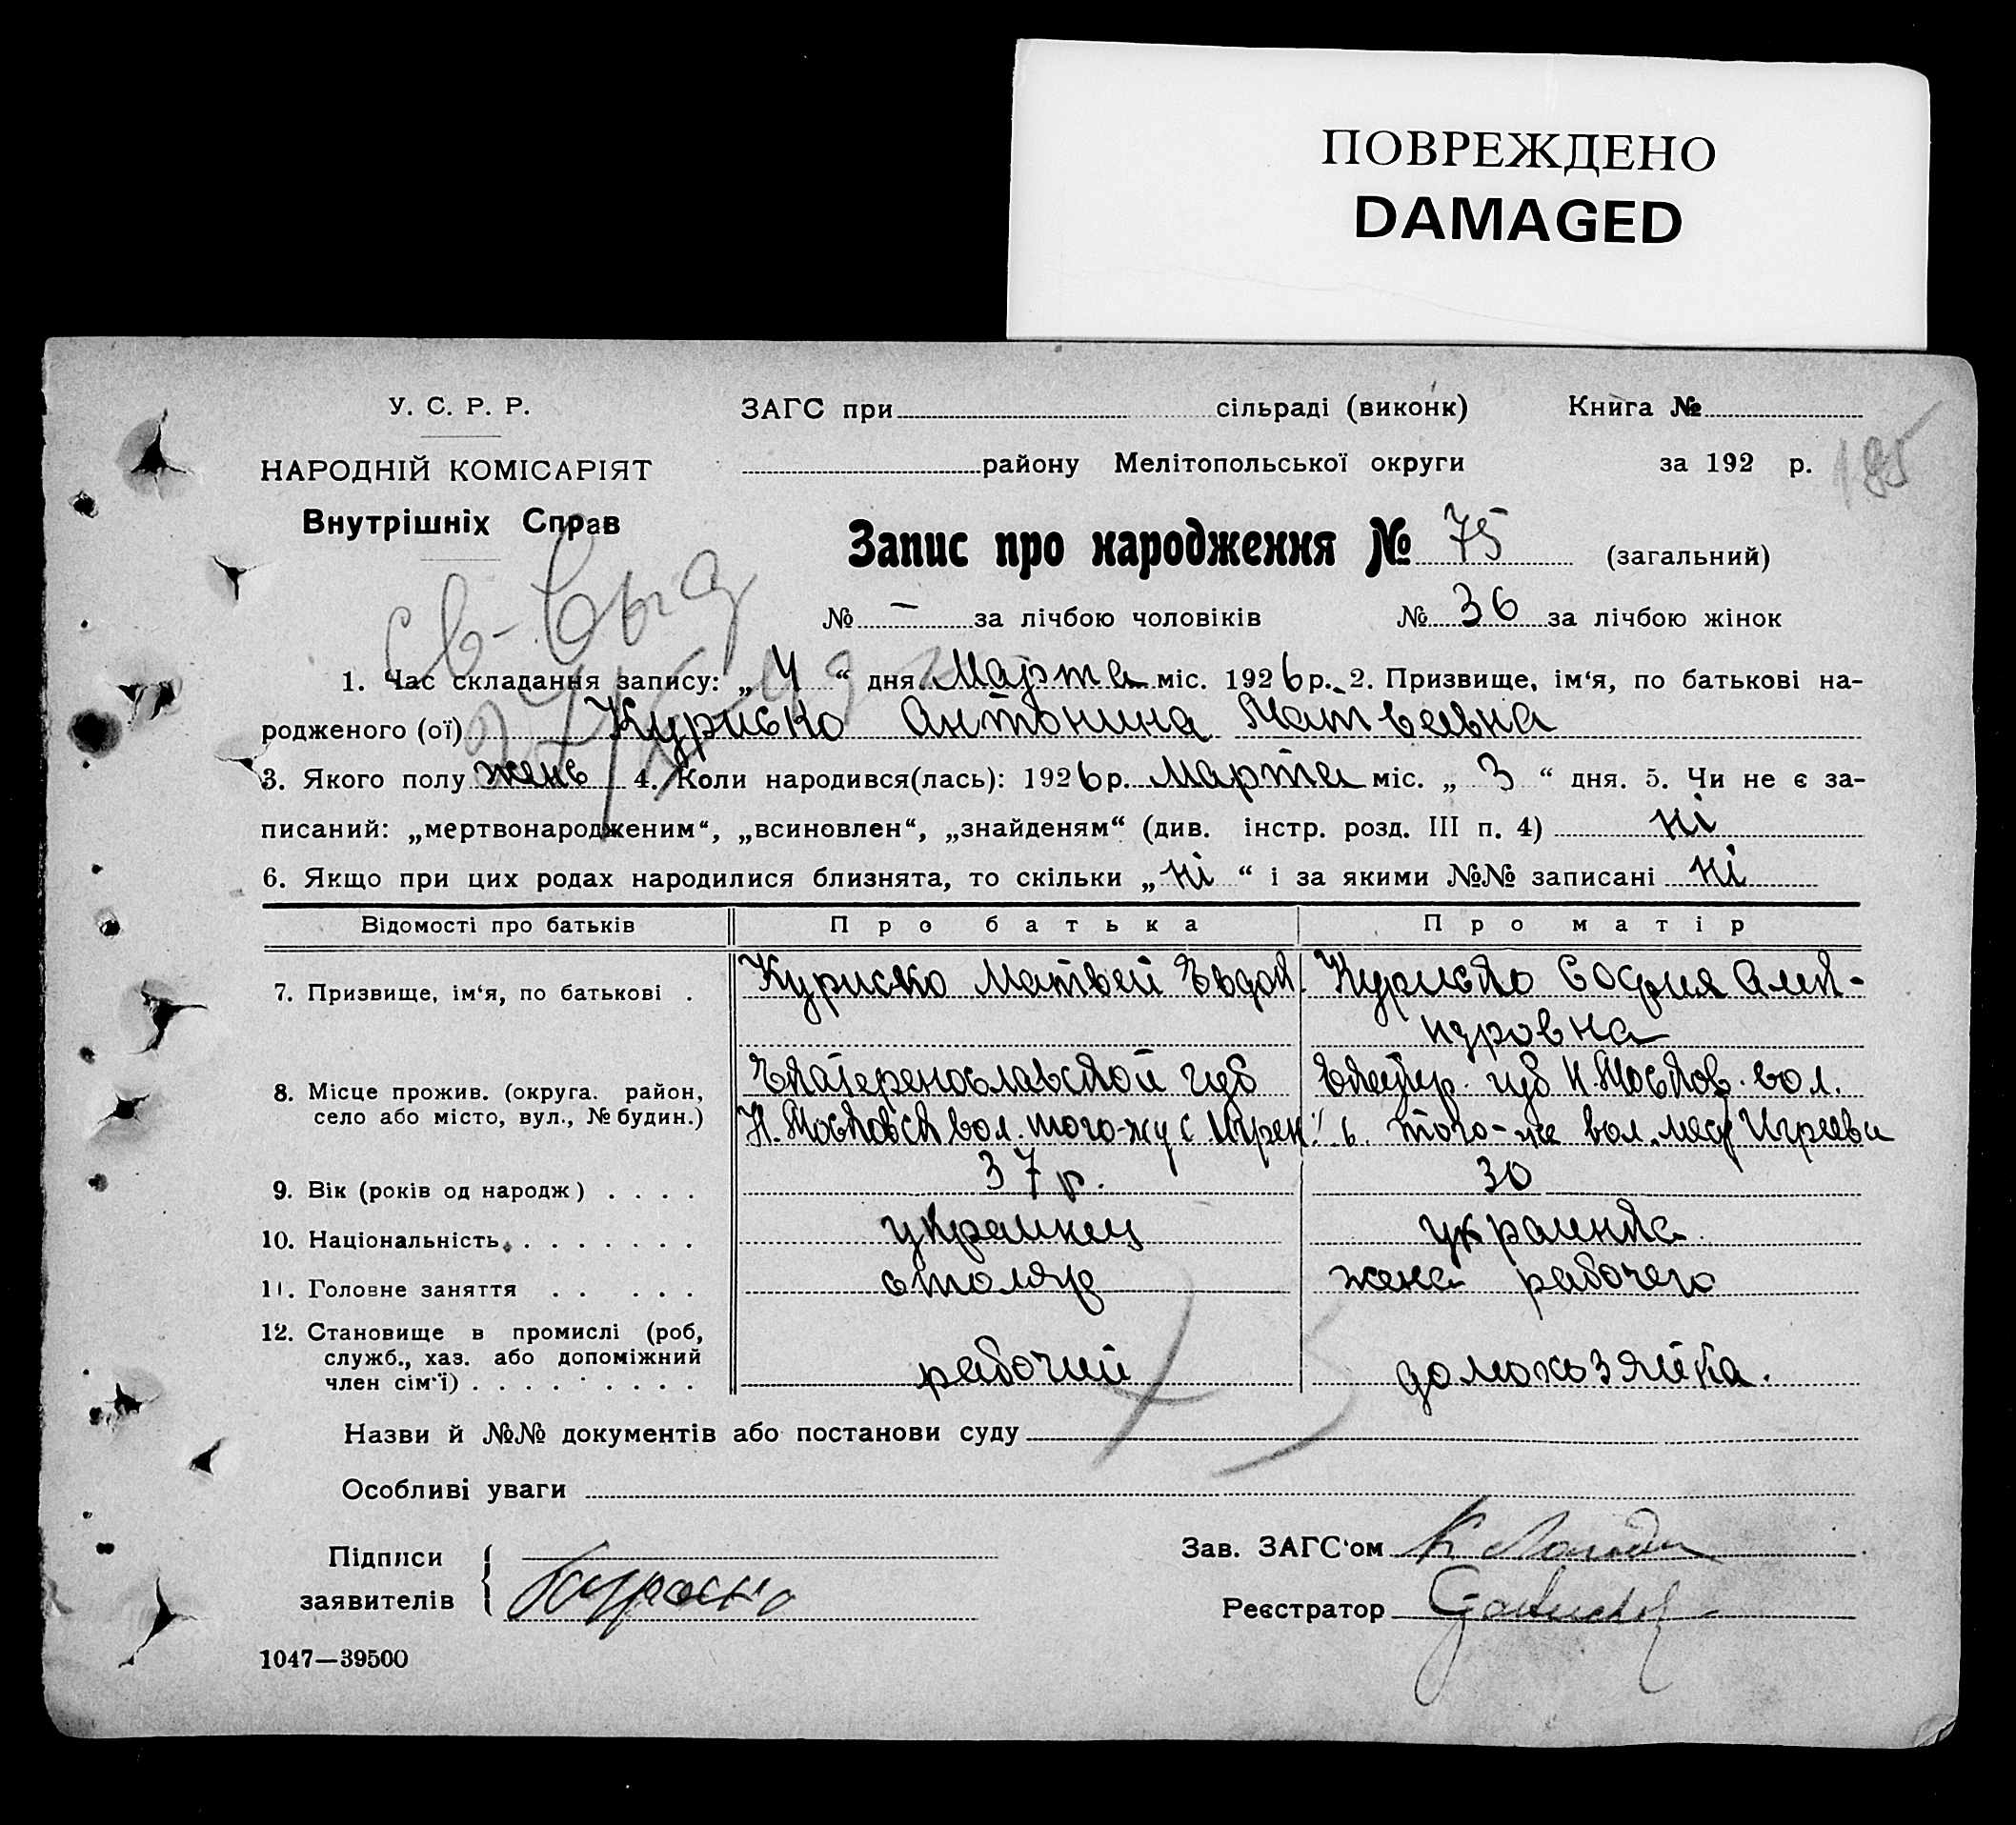 ПОВРЕЖДЕНО
DAMAGED
У. С. Р. Р.
ЗАГС при сільраді (виконк) Книга №
НАРОДНІЙ КОМІСАРІЯТ
району Мелітопольської округи за 192 р.
195
Внутрішніх Справ
Запис про народження № 75 (загальний)
св-во выд
№ — за лічбою чоловіків № 36 за лічбою жінок
1. Час складання запису: „ 4 “ дня Марта міс. 1926 р. 2. Призвище, ім‘я, по батькові на-
родженого (ої) Курисько Антонина Матвеевна
3. Якого полу жень 4. Коли народився(лась): 1926 р. Марта міс. „ 3 “ дня. 5. Чи не є за-
писаний: „мертвонародженим“, „всиновлен“, „знайденям“ (див. інстр. розд. III п. 4) ні
6. Якщо при цих родах народилися близнята, то скільки „ ні “ і за якими №№ записані ні
Відомості про батьків Про батька Про матір
7. Призвище, ім‘я, по батькові . Курисько Матвей Евдок. Курисько София Алек-
ндровна
8. Місце прожив. (округа. район, Екатеренославской губ губ Н. Московск. вол.
село або місто, вул., № будин.) Н. Московск вол. того-же вол.
9. Вік (років од народж) . . . . 37 р. 30
10. Національність . . . . . . . украинец украинка
11. Головне заняття . . . . . столяр жена рабочего
12. Становище в промислі (роб,
служб., хаз. або допоміжний
член сім‘ї) . . . . . . . . . рабочий домохозяйка.
Назви й №№ документів або постанови суду
Особливі уваги
Підписи
Зав. ЗАГС‘ом
заявителів
Реєстратор
1047—39500